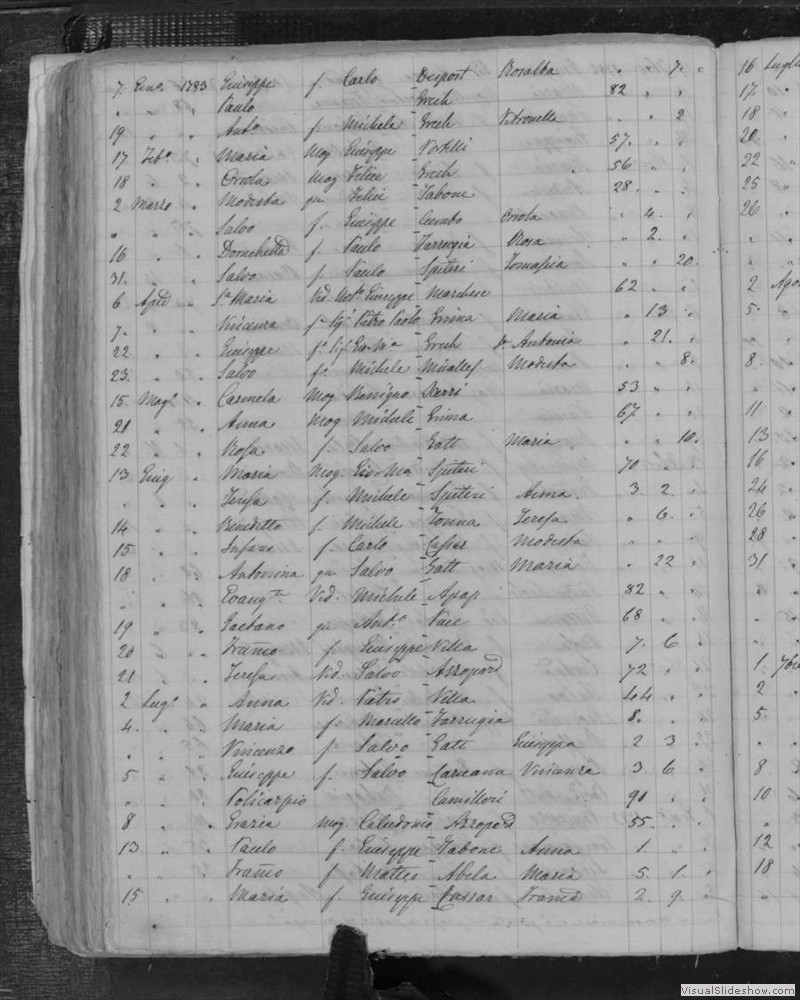 7 Geno. 1783 Giuseppe f. Carlo Despott Rosalba 7
Paulo Grech 82
19 Anto f. Michele Grech Petronella 2
17 Febo Maria mog Giuseppe Portelli 57
18 Orsola mog Felice Grech 56
2 Marzo Modesta qu Felice Zabone 28
Salvo f. Giuseppe Curmbo Orsola 4
16 Domenica f. Paulo Farrugia Rosa 2
31 Salvo f. Paulo Spiteri Tomasia 20
6 Aple Sa Maria Vid. Noto Giuseppe Marchese 62
7 Vincenza Pietro Paolo Maria 13
22 Giuseppe Grech Antonia 21
23 Salvo f. Michele Muscat Modesta 8
15 Mago Carmela mog Benigno 53
21 Anna mog Michele 67
22 Rosa f. Salvo Gatt Maria 10
13 Giug Maria mog. Gio Ma Spiteri 70
Teresa f. Michele Spiteri Anna 3 2
14 Benedetto f. Michele Tonna Teresa 6
15 Infano f. Carlo Cassar Modesta
18 Antonina qu Salvo Gatt Maria 22
Evangta Vid. Michele Apap 82
19 Gaetano qu Anto Pace 68
20 Franco f. Giuseppe Villa 7 6
21 Teresa Vid. Salvo Azzopard 72
2 Lugo Anna Vid. Pietro Villa 44
4 Maria f. Marcello Farrugia 8
Vincenzo f. Salvo Gatt Giuseppa 2 3
5 Giuseppe f. Salvo Caruana Vincenza 3 6
Policarpio Camilleri 90
8 Grazia mog. Calcedonio Azzopard 55
13 Paulo f. Giuseppe Zabone Anna 1
Franco f. Matteo Abela Maria 5 1
15 Maria f. Giuseppe Cassar 2 9
16 Luglio
17
18
20
22
25
26
2 Ago
5
8
11
13
16
24
26
28
31
1 7bre
2
5
8
10
12
18
VisualSlideshow.com